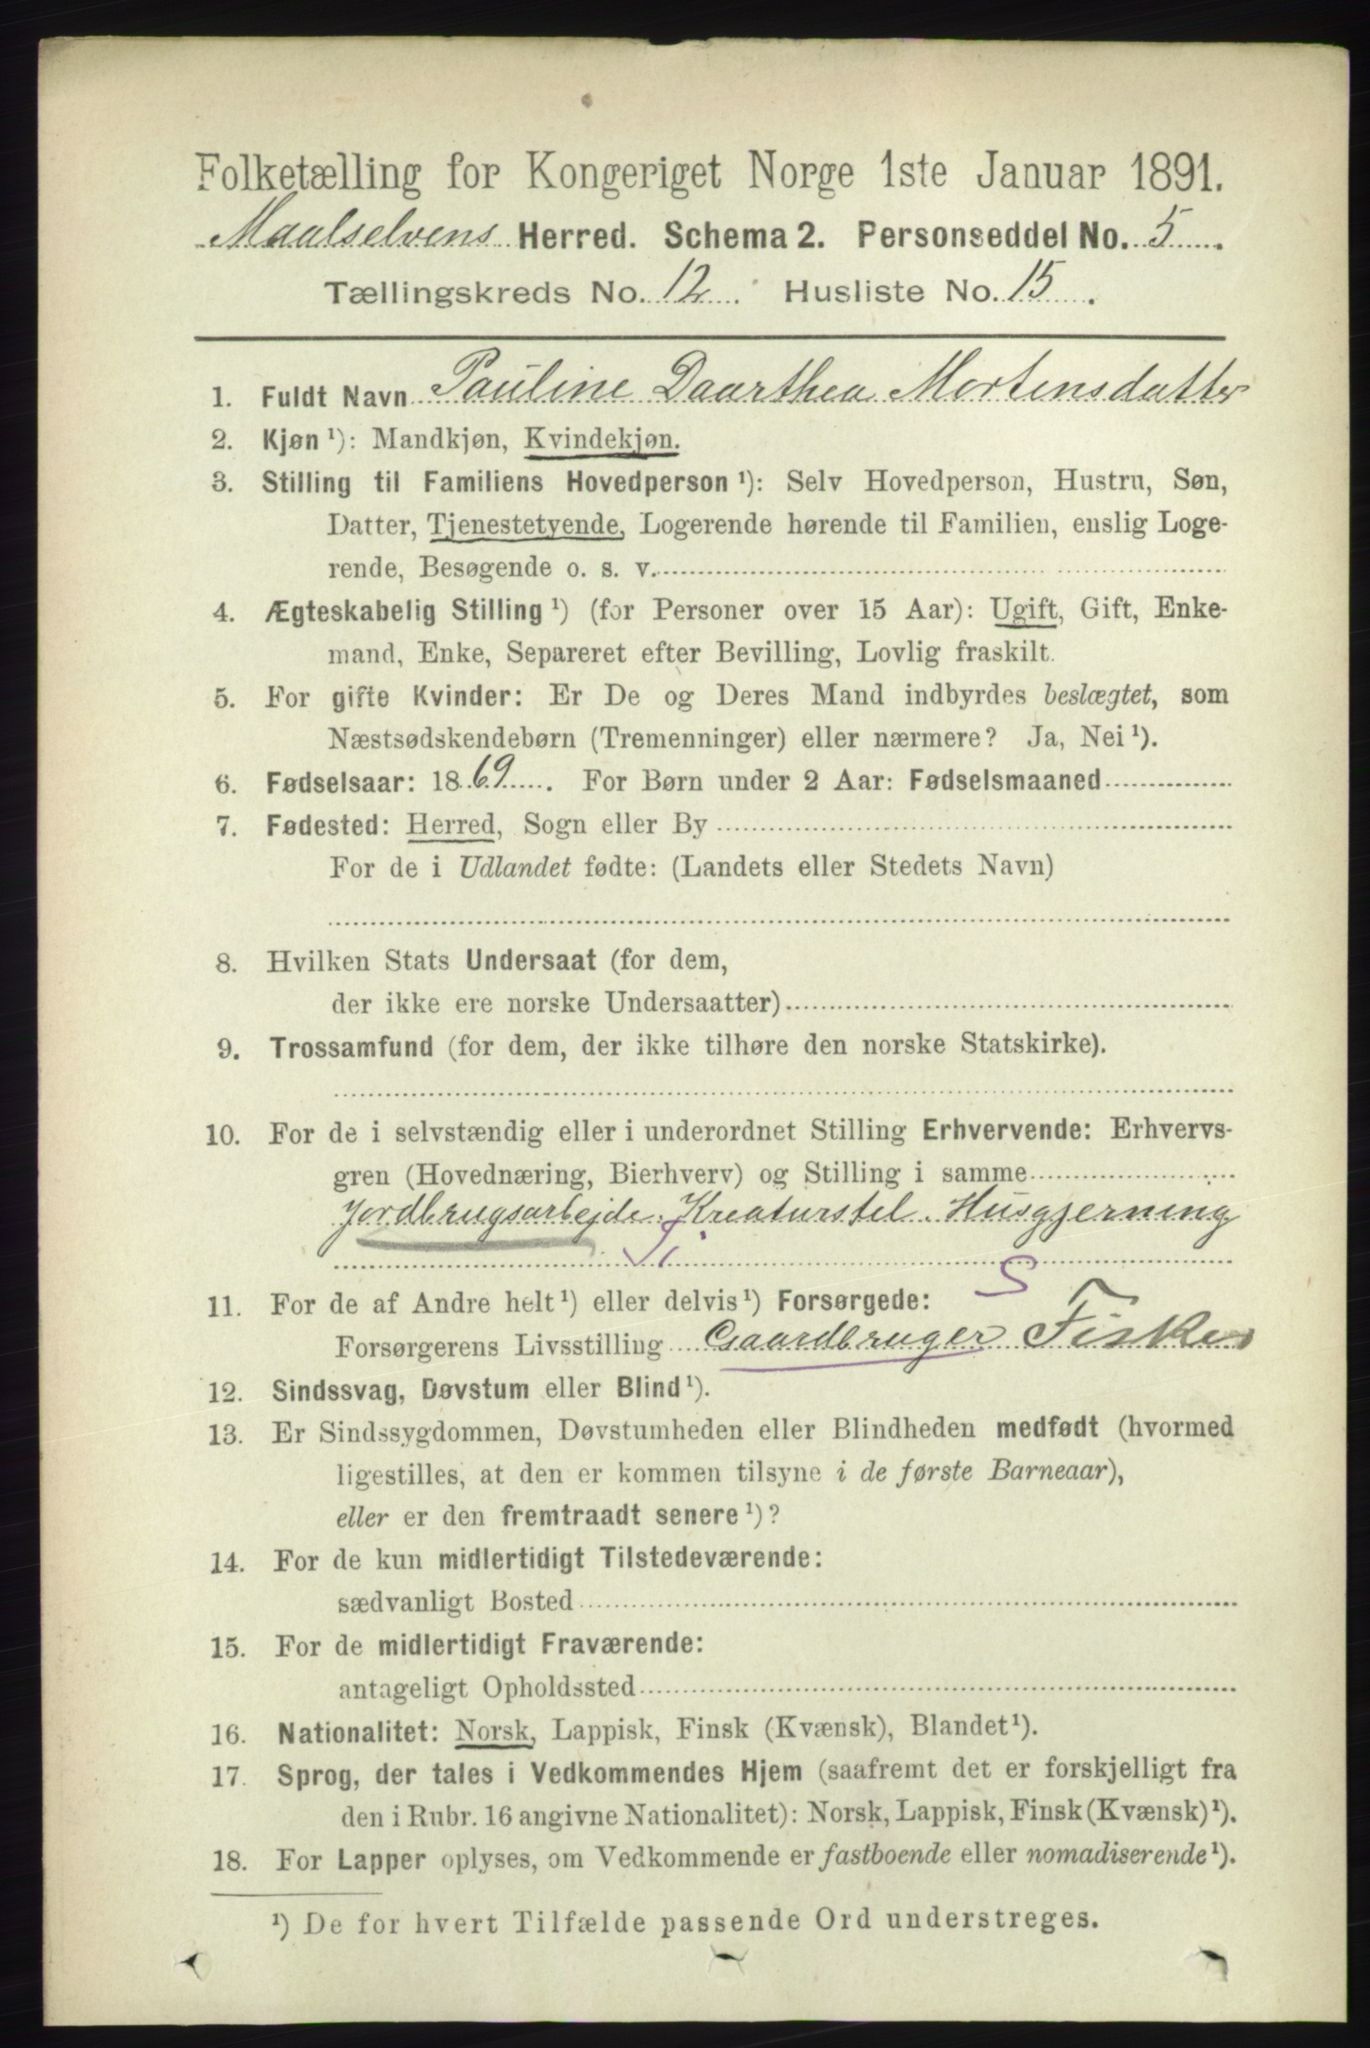 Folketælling for Kongeriget Norge 1ste Januar 1891.
Maalselvens Herred. Schema 2. Personseddel No. 5.
Tællingskreds No. 12. Husliste No. 15.
1. Fuldt Navn Pauline Daarthea Mortensdatter
2. Kjøn ¹): Mandkjøn, Kvindekjøn.
3. Stilling til Familiens Hovedperson ¹): Selv Hovedperson, Hustru, Søn,
Datter, Tjenestetyende, Logerende hørende til Familien, enslig Loge-
rende, Besøgende o. s. v.
4. Ægteskabelig Stilling ¹) (for Personer over 15 Aar): Ugift, Gift, Enke-
mand, Enke, Separeret efter Bevilling, Lovlig fraskilt.
5. For gifte Kvinder: Er De og Deres Mand indbyrdes beslægtet, som
Næstsødskendebørn (Tremenninger) eller nærmere? Ja, Nei ¹).
6. Fødselsaar: 1869. For Børn under 2 Aar: Fødselsmaaned
7. Fødested: Herred, Sogn eller By
For de i Udlandet fødte: (Landets eller Stedets Navn)
8. Hvilken Stats Undersaat (for dem,
der ikke ere norske Undersaatter)
9. Trossamfund (for dem, der ikke tilhøre den norske Statskirke).
10. For de i selvstændig eller i underordnet Stilling Erhvervende: Erhvervs-
gren (Hovednæring, Bierhverv) og Stilling i samme
Jordbrugsarbejde. Kreaturstel. Husgjerning
11. For de af Andre helt ¹) eller delvis ¹) Forsørgede: S
Forsørgerens Livsstilling Gaardbruger Fisker
12. Sindssvag, Døvstum eller Blind ¹).
13. Er Sindssygdommen, Døvstumheden eller Blindheden medfødt (hvormed
ligestilles, at den er kommen tilsyne i de første Barneaar),
eller er den fremtraadt senere ¹)?
14. For de kun midlertidigt Tilstedeværende:
sædvanligt Bosted
15. For de midlertidigt Fraværende:
antageligt Opholdssted
16. Nationalitet: Norsk, Lappisk, Finsk (Kvænsk), Blandet ¹).
17. Sprog, der tales i Vedkommendes Hjem (saafremt det er forskjelligt fra
den i Rubr. 16 angivne Nationalitet): Norsk, Lappisk, Finsk (Kvænsk) ¹).
18. For Lapper oplyses, om Vedkommende er fastboende eller nomadiserende ¹).
¹) De for hvert Tilfælde passende Ord understreges.